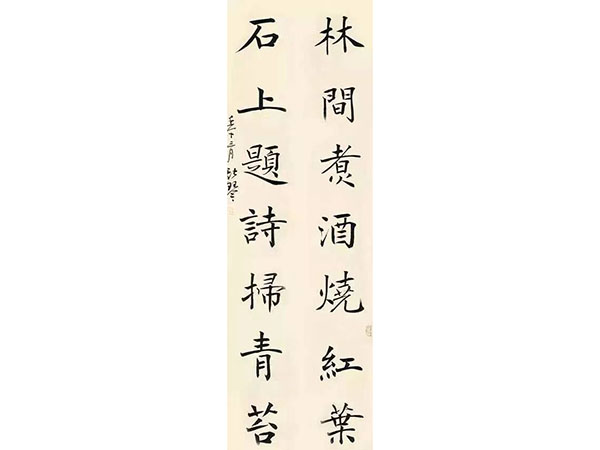 林間煮酒燒紅葉
石上題詩掃青苔